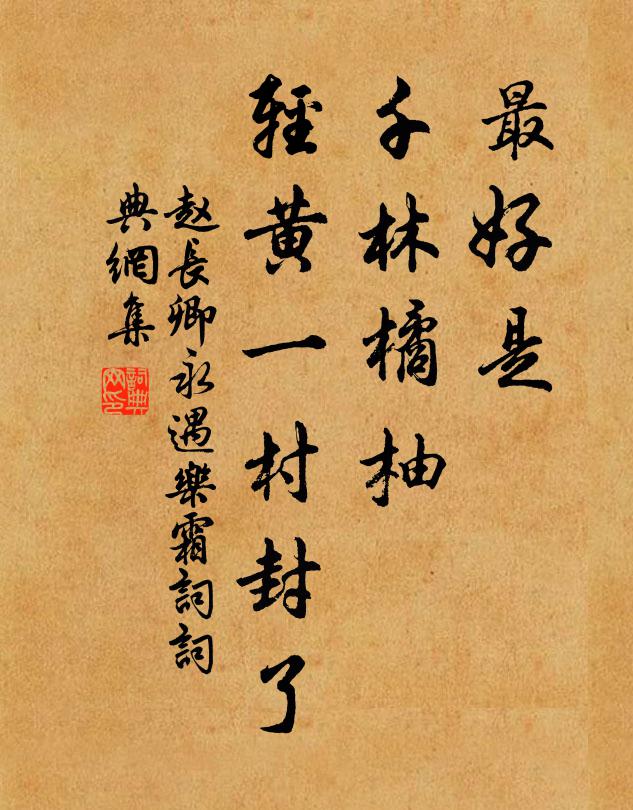 最好是
千林橘柚
輕黄一村封了
赵長卿永遇樂霜詞詞
典網集
詞典
网印